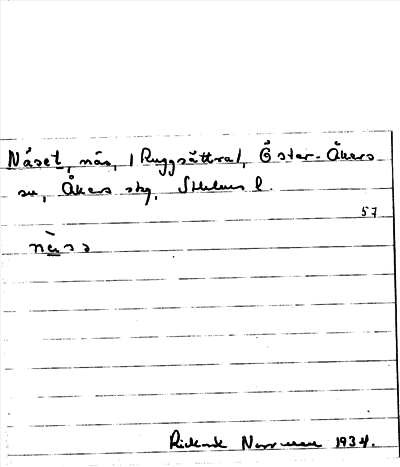 Näset, näs, (Ruggsättra), Öster-Åkers
sn, Åkers skg, Sthlms l.
57
näss
Rickard Norrman 1934.